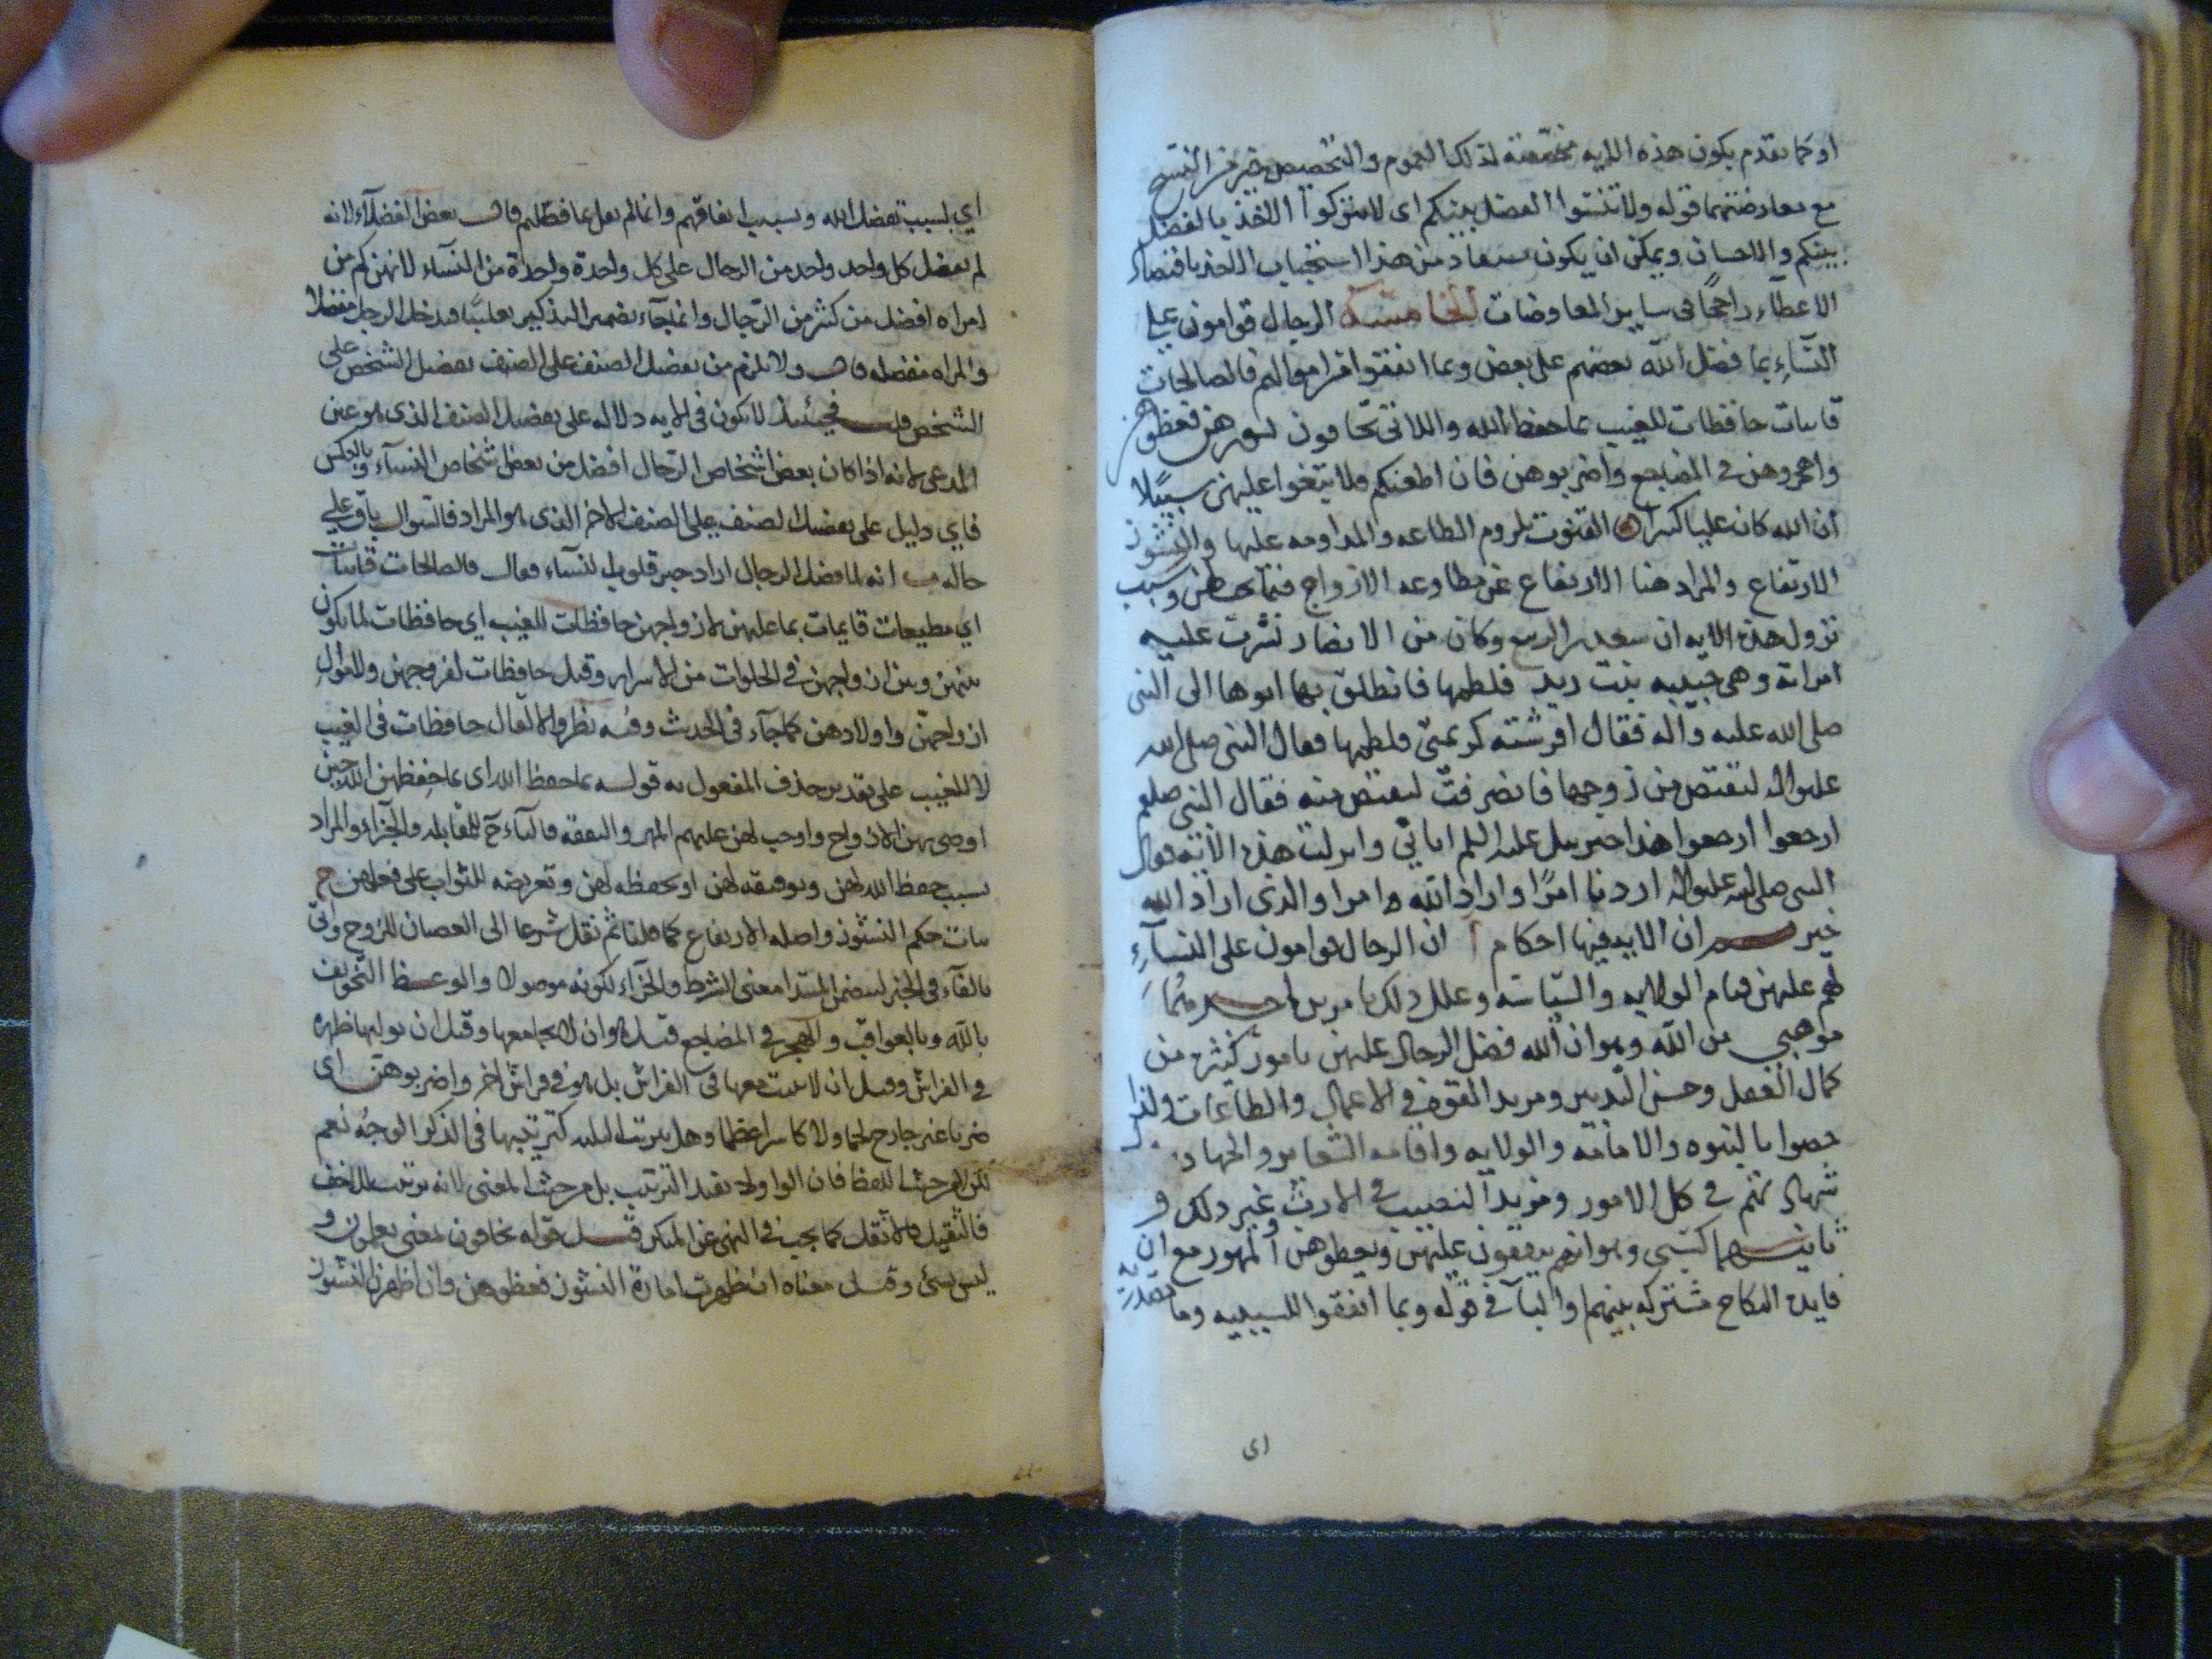 او كما تقدم يكون هذه الايه مخصصة لذلك العموم والتخصيص خير من النسخ
مع معارضتهما قوله ولا تنسوا الفضل بينكم اى لا تتركوا الاخذ بالفضل
بينكم والاحسان ويمكن ان يكون يستفاد من هذا استحباب الاخذ باقتضاء
الاعطاء راجحا فى ساير المعاوضات الخامسة الرجال قوامون على
النساء بما فضل الله بعضهم على بعض وبما انفقوا من اموالهم فالصالحات
قانتات حافظات للغيب بما حفظ الله واللاتى تخافون نشوزهن فعظوهن
واهجروهن فى المضاجع واضربوهن فان اطعنكم فلا تبغوا عليهن سبيلا
ان الله كان عليا كبيرا القنوت لزوم الطاعه والمداومه عليها والنشوز
الارتفاع والمراد هنا الارتفاع عن مطاوعه الازواج فيما وسبب
نزول هذه الايه ان سعد بن الربيع وكان من الانصار نشزت عليه
امراته وهى حبيبه بنت زيد فلطمها فانطلق بها ابوها الى النبى
صلى الله عليه واله فقال افرشته كريمتى فلطمها فقال النبى صلى الله
عليه واله لتقتص من زوجها فانصرفت لتقتص منه فقال النبى صلعم
ارجعوا ارجعوا هذا جبرييل عليه السلم اتانى وانزلت هذه الآية فقال
النبى صلى الله عليه واله اردنا امرا واراد الله امرا والذى اراد الله
خير ان الايه فيها احكام آ ان الرجال قوامون على النساء
لهم عليهن قيام الولايه والسياسة وعلل ذلك بامرين احدهما
موهبى من الله وهو ان الله فضل الرجال عليهن بامور كثيره من
كمال العقل وحسن التدبير ومزيد القوه فى الاعمال والطاعات ولذا
خصوا بالنبوه والامامه والولايه واقامه الشعاير والجهاد و
شهادتهم فى كل الامور ومزيد النصيب فى الارث وغير ذلك و
ثانيهما كسبى وهو انهم ينفقون عليهن ويعطوهن المهور مع ان
فايده النكاح مشتركه بينهما والباء فى قوله وبما انفقوا للسببيه وما مصدرية
اى
اي بسبب تفضيل الله وبسبب انفاقهم وانما لم يقل بما فضلهم قال بعض الفضلآء لانه
لم يفضل كل واحد واحد من الرجال على كل واحدة واحدة من النسآء لانهن كم من
امراه افضل من كثير من الرجال وانما جآء بضمير التذكير تغليبا فيدخل الرجل مفضلا
والمراه مفضله قال ولا يلزم من تفضيل الصنف على الصنف تفضيل الشخص على
الشخص قلت فحينئذ لا يكون فى الايه دلاله على تفضيل الصنف الذى هو عين
المدعى لانه اذا كان بعض اشخاص الرجال افضل من بعض اشخاص النسآء وبالعكس
فاي دليل على تفضيل الصنف على الصنف الاخر الذى هو المراد فالسوال باق على
حاله ب انه لما فضل الرجال اراد جبر قلوب النسآء فقال فالصالحات قانتات
اي مطيعات قايمات بما عليهن لازواجهن حافظات للغيب اي حافظات لما يكون
بينهن وبين ازواجهن فى الخلوات من الاسرار وقيل حافظات لفروجهن ولاموال
ازواجهن واولادهن كما جآء فى الحديث وفيه نظر والا لقال حافظات فى الغيب
لا للغيب على تقدير حذف المفعول به قوله بما حفظ الله اى بما حفظهن الله حين
اوصى بهن الازواج واوجب لهن عليهم المهر والنفقه فالبآء ح للمقابله والجزاء والمراد
بسبب حفظ الله لهن وتوفيقه لهن او بحفظه لهن وتعريضه للثواب على فعلهن ج
بيان حكم النشوز واصله الارتفاع كما قلنا ثم نقل شرعا الى العصيان للزوج واتى
بالفآء فى الخبر لتضمن المبتدا معنى الشرط والجزآء لكونه موصولا والوعظ التخويف
بالله وبالعواقب والهجر فى المضاجع قيل هو ان لا يجامعها وقيل ان يوليها ظهره
فى الفراش وقيل ان لا يبيت معها فى الفراش بل هو فى فراش اخر واضربوهن اى
ضربا غير جارح لحما ولا كاسر عظما وهل يترتب الثلثه كترتيبها فى الذكر الوجه نعم
لكن لا من حيث اللفظ فان الواو لا تفيد الترتيب بل من حيث المعنى لانه ترتيب للاخف
فالثقيل فالاثقل كما يجب فى النهى عن المنكر قيل قوله تخافون بمعنى تعلمون و
ليس بشئ وقيل معناه ان ظهرت امارة النشوز فعظوهن وان اظهرن النشوز